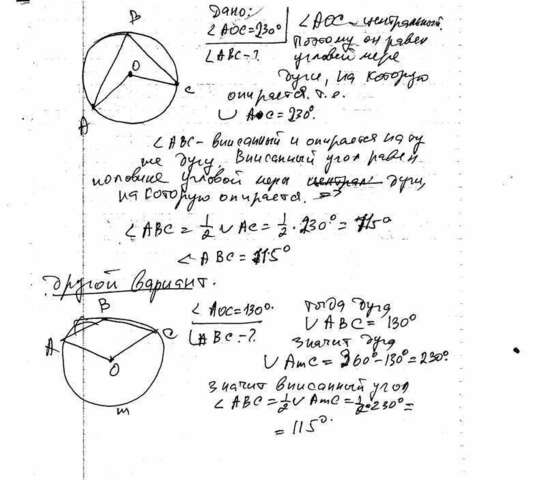 B
O
A
C
Дано:
∠AOC=230°
∠ABC-?
∠AOC - центральный.
Поэтому он равен
угловой мере
дуги, на которую
опирается. т.е.
∪ AC=230°.
∠ABC - вписанный и опирается на ту
же дугу. Вписанный угол равен
половине угловой меры дуги,
на которую опирается. ⇒
∠ABC = 1/2 ∪ AC = 1/2 · 230° = 115°
∠ABC = 115°
Другой вариант.
B
A
C
O
m
∠AOC=130°.
∠ABC-?
тогда дуга
∪ ABC = 130°
значит дуга
∪ AmC = 360°-130°=230°.
значит вписанный угол
∠ABC = 1/2 ∪ AmC = 1/2 · 230° =
= 115°.